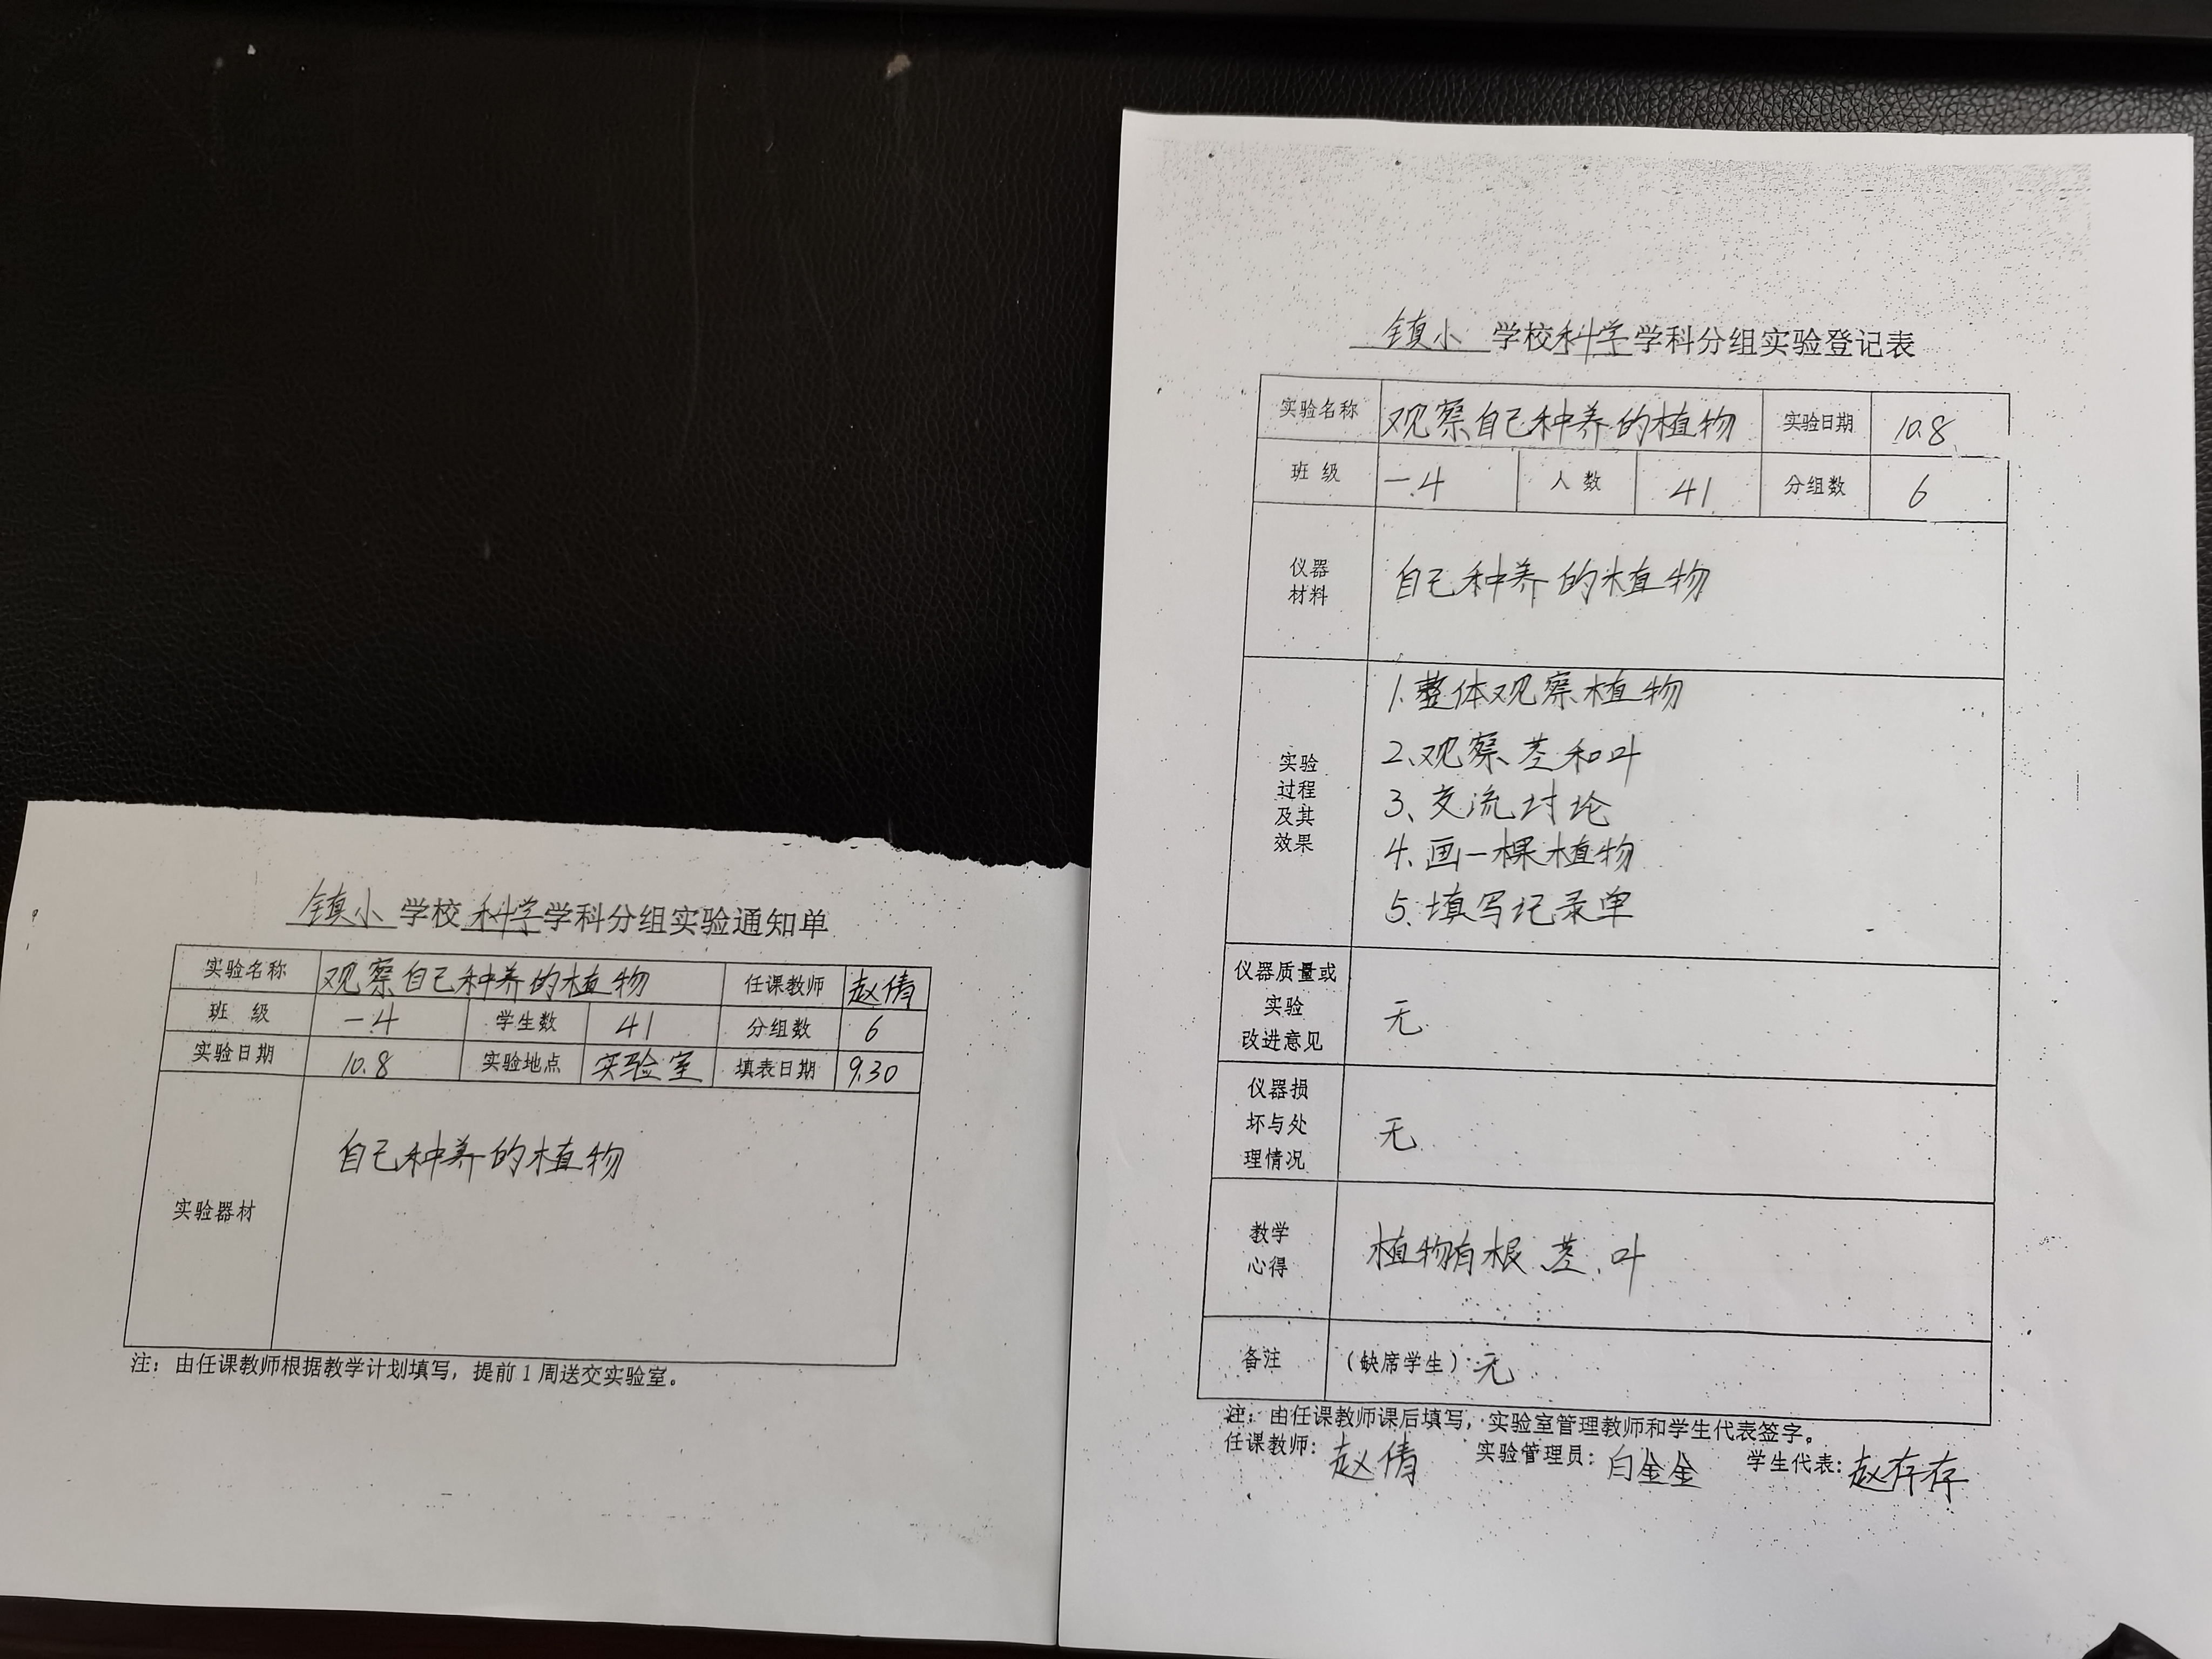 镇小 学校 科学 学科分组实验通知单
实验名称 观察自己种养的植物 任课教师 赵倩
班 级 一.4 学生数 41 分组数 6
实验日期 10.8 实验地点 实验室 填表日期 9.30
实验器材 自己种养的植物
注：由任课教师根据教学计划填写，提前1周送交实验室。
镇小 学校 科学 学科分组实验登记表
实验名称 观察自己种养的植物 实验日期 10.8
班 级 一.4 人 数 41 分组数 6
仪器
材料
自己种养的植物
实验
过程
及其
效果
1.整体观察植物
2.观察茎和叶
3、交流讨论
4.画一棵植物
5.填写记录单
仪器质量或
实验
改进意见
无
仪器损
坏与处
理情况
无
教学
心得
植物有根、茎、叶
备注 （缺席学生）无
注：由任课教师课后填写，实验室管理教师和学生代表签字。
任课教师：赵倩 实验管理员：白金金 学生代表：赵存存